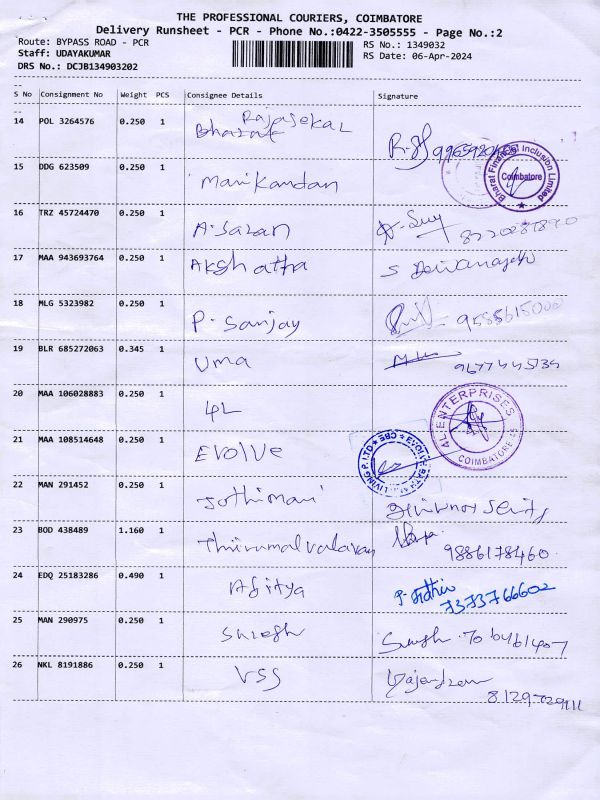 THE PROFESSIONAL COURIERS, COIMBATORE
Delivery Runsheet - PCR - Phone No.:0422-3505555 - Page No.:2
Route: BYPASS ROAD - PCR
RS No.: 1349032
Staff: UDAYAKUMAR
RS Date: 06-Apr-2024
DRS No.: DCJB134903202
S No Consignment No Weight PCS Consignee Details Signature
14 POL 3264576 0.250 1 Rajasekal
Bharat
Bharat Financial Inclusion Limited
Coimbatore
15 DDG 623509 0.250 1 Manikandan
16 TRZ 45724470 0.250 1 A.Saran
17 MAA 943693764 0.250 1 Akshatha S
18 MLG 5323982 0.250 1 P. Sanjay
19 BLR 685272063 0.345 1 Uma
20 MAA 106028883 0.250 1 4L
4L ENTERPRISES
COIMBATORE
21 MAA 108514648 0.250 1 EVOLVE
22 MAN 291452 0.250 1 Jothimani
23 BOD 438489 1.160 1 Thirumalvalavan
9886178460
24 EDQ 25183286 0.490 1 Aditya
7373766602
25 MAN 290975 0.250 1 Suresh
26 NKL 8191886 0.250 1 VSS Rajendran
8129729111